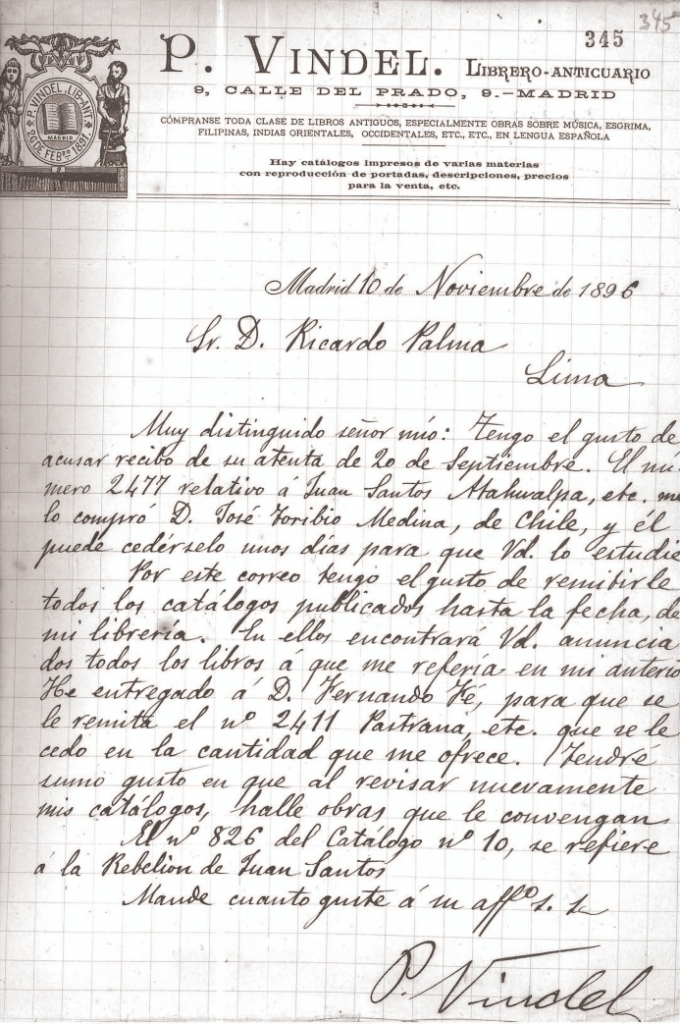 345
345
P. VINDEL. LIBRERO-ANTICUARIO
9, CALLE DEL PRADO, 9.—MADRID
CÓMPRANSE TODA CLASE DE LIBROS ANTIGUOS, ESPECIALMENTE OBRAS SOBRE MÚSICA, ESGRIMA,
FILIPINAS, INDIAS ORIENTALES, OCCIDENTALES, ETC., ETC., EN LENGUA ESPAÑOLA
Hay catálogos impresos de varias materias
con reproducción de portadas, descripciones, precios
para la venta, etc.
P. VINDEL, LIB-ANT
MADRID
Madrid 10 de Noviembre de 1896
Sr. D. Ricardo Palma
Lima
Muy distinguido señor mio: Tengo el gusto de
acusar recibo de su atenta de 20 de Septiembre. El nú-
mero 2477 relativo á Juan Santos Atahualpa, etc. me
lo compró D. José Toribio Medina, de Chile, y él
puede cedérselo unos días para que Vd. lo estudie
Por este correo tengo el gusto de remitirle
todos los catálogos publicados hasta la fecha, de
mi librería. En ellos encontrará Vd. anuncia
dos todos los libros á que me refería en mi anterio
He entregado á D. Fernando Fé, para que se
le remita el nº 2411 Pastrana, etc. que se le
cedo en la cantidad que me ofrece. Tendré
sumo gusto en que al revisar nuevamente
mis catálogos, halle obras que le convengan
El nº 826 del Catálogo nº 10, se refiere
á la Rebelion de Juan Santos
Mande cuanto guste á su affº s. s.
P. Vindel